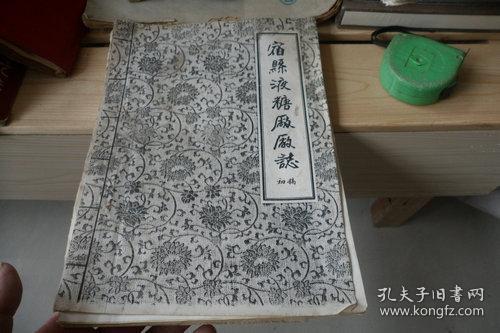 宿縣液糖厰厰誌
初稿
孔夫子旧书网
www.kongfz.com